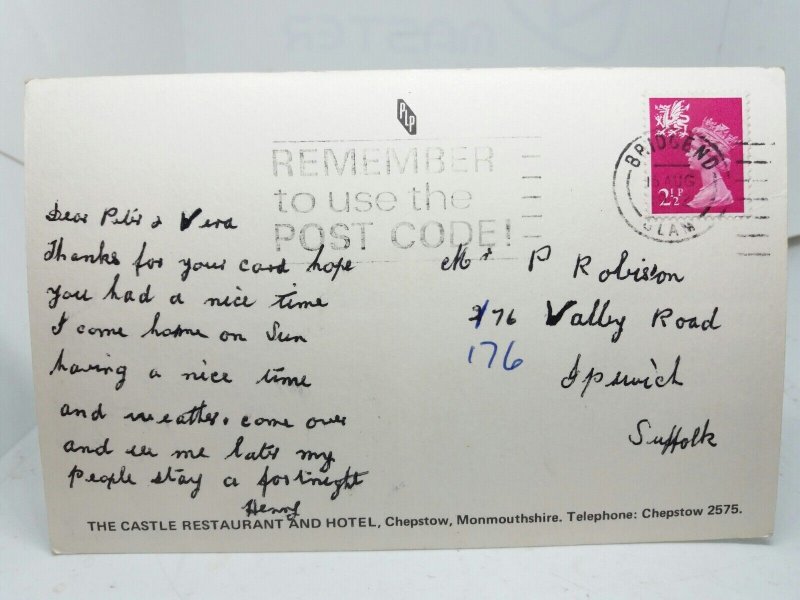 PLP
REMEMBER
to use the
POST CODE!
BRIDGEND
AUG
GLAM
2½P
Dear Peter & Vera
Thanks for your card hope
you had a nice time
I come home on Sun
having a nice time
and weather. come over
and see me later my
people stay a fortnight
Henry
Mr P Robison
176 Valley Road
176
Ipswich
Suffolk
THE CASTLE RESTAURANT AND HOTEL, Chepstow, Monmouthshire. Telephone: Chepstow 2575.